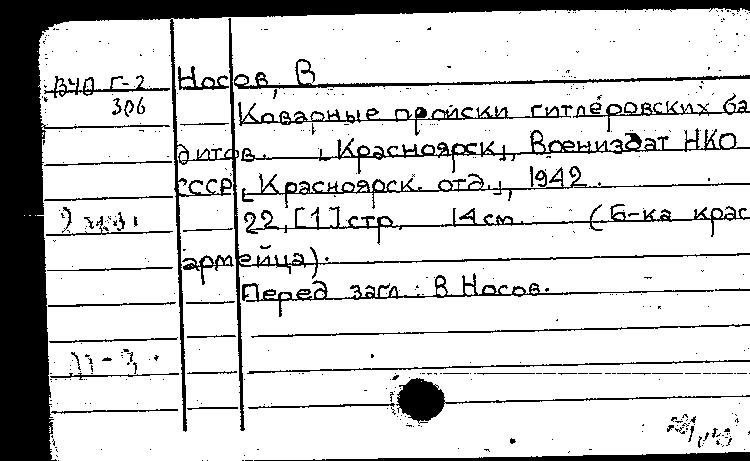 ВЧО Г-2 Носов, В
306
Коварные происки гитлеровских ба
дитов. [Красноярск], Воениздат НКО
СССР [Красноярск. отд.], 1942.
2 экз. 22, [1] стр. 14 см. (Б-ка крас
армейца).
Перед загл.: В Носов.